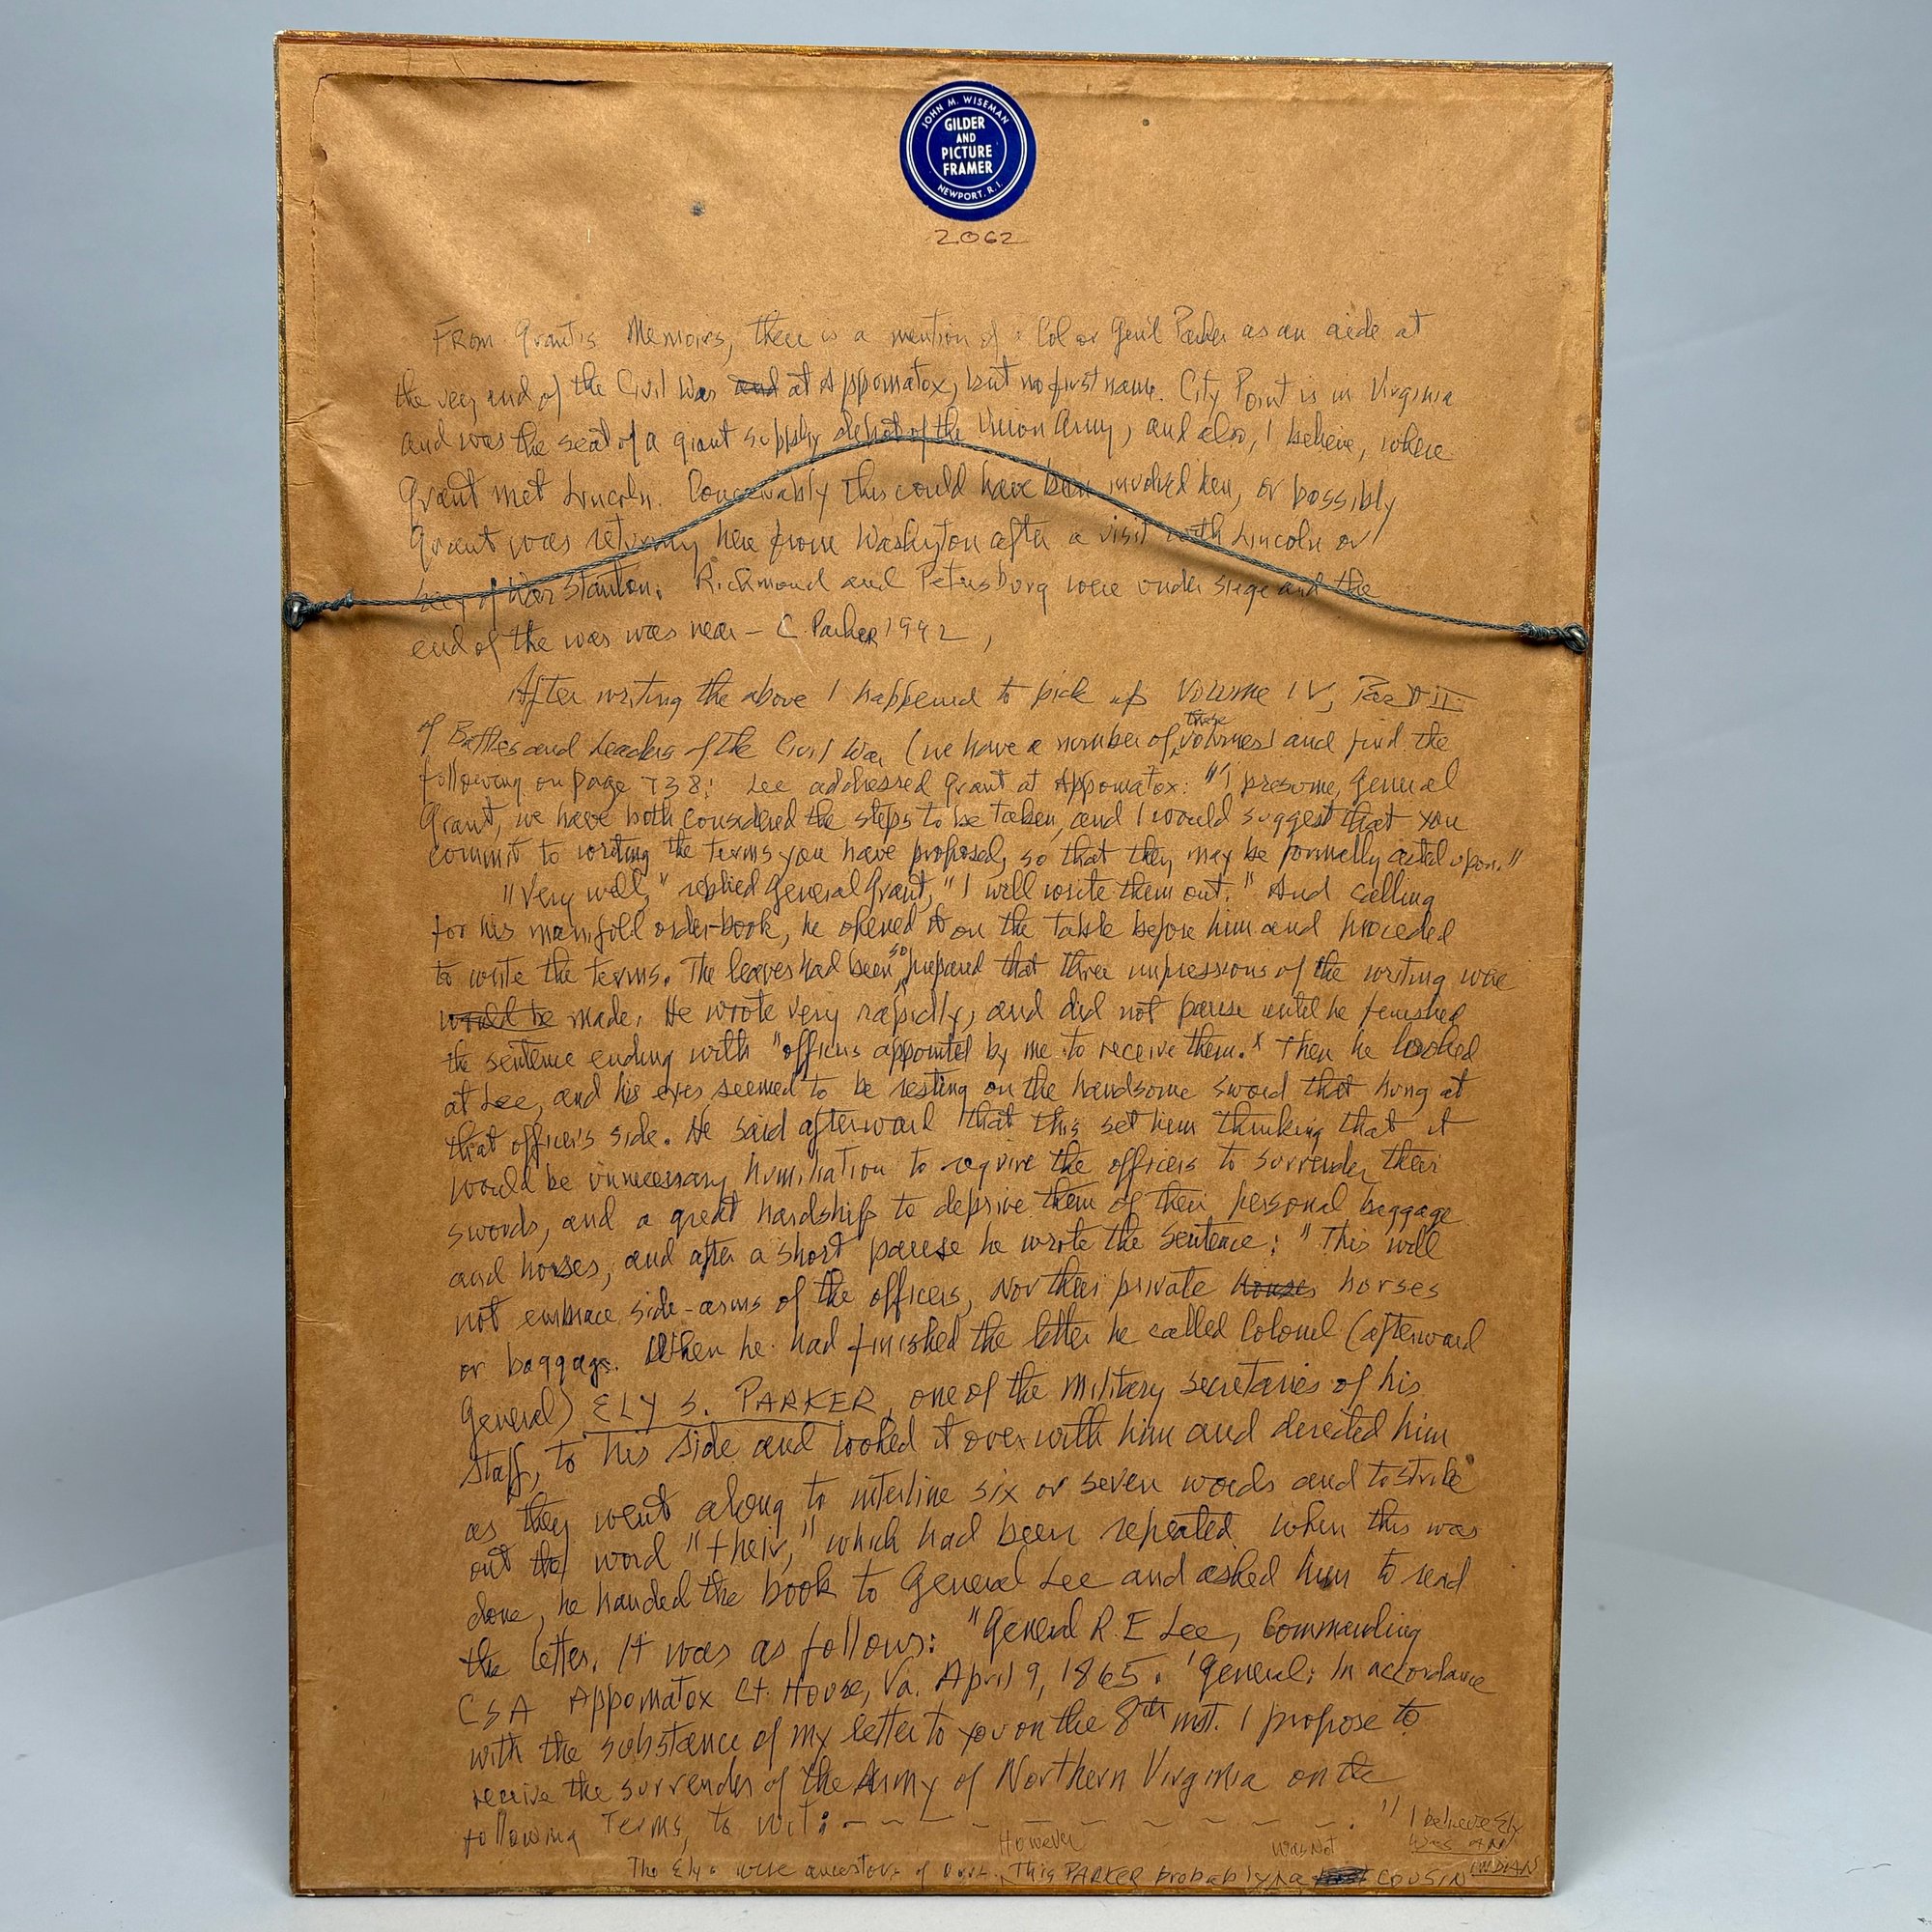 JOHN M. WISEMAN
GILDER
AND
PICTURE
FRAMER
NEWPORT, R.I.
2062
From Grant's Memoirs, there is a mention of a Col or Gen'l Parker as an aide at
the very end of the Civil War and at Appomatox, but no first name. City Point is in Virginia
and was the seat of a giant supply depot of the Union Army, and also, I believe, where
Grant met Lincoln. Conceivably this could have been involved here, or possibly
Grant was returning here from Washington after a visit with Lincoln or
Secy of War Stanton. Richmond and Petersburg were under siege and the
end of the was was near – C. Parker 1992,
After writing the above I happened to pick up Volume IV, Part II
of Battles and Leaders of the Civil War (we have a number of these volumes) and find the
following on page 738: Lee addressed Grant at Appomatox: "'I presume, General
Grant, we have both considered the steps to be taken, and I would suggest that you
commit to writing the terms you have proposed, so that they may be formally acted upon."
"Very well," replied General Grant, "I will write them out." And calling
for his manifold order-book, he opened it on the table before him and proceded
to write the terms. The leaves had been so prepared that three impressions of the writing were
would be made. He wrote very rapidly, and did not pause until he finished
the sentence ending with "officers appointed by me to receive them." Then he looked
at Lee, and his eyes seemed to be resting on the handsome sword that hung at
that officer's side. He said afterward that this set him thinking that it
would be unnecessary humiliation to require the officers to surrender their
swords, and a great hardship to deprive them of their personal baggage
and horses, and after a short pause he wrote the sentence: "This will
not embrace side-arms of the officers, nor their private houses horses
or baggage. When he had finished the letter he called Colonel (afterward
General) ELY S. PARKER, one of the military secretaries of his
staff, to his side and looked it over with him and directed him
as they went along to interline six or seven words and to strike
out the word "their," which had been repeated. When this was
done, he handed the book to General Lee and asked him to read
the letter. It was as follows: "General R. E Lee, Commanding
CSA Appomatox Ct. House, Va. April 9, 1865. 'General: In accordance
with the substance of my letter to you on the 8th inst. I propose to
receive the surrender of the Army of Northern Virginia on the
following terms, to wit: – ~ ~ – ~ – ~ ~ ~ ~ ~ . "
I believe Ely
was AN
INDIAN
The Elys were ancestors of ours. However This PARKER probably was not a COUSIN